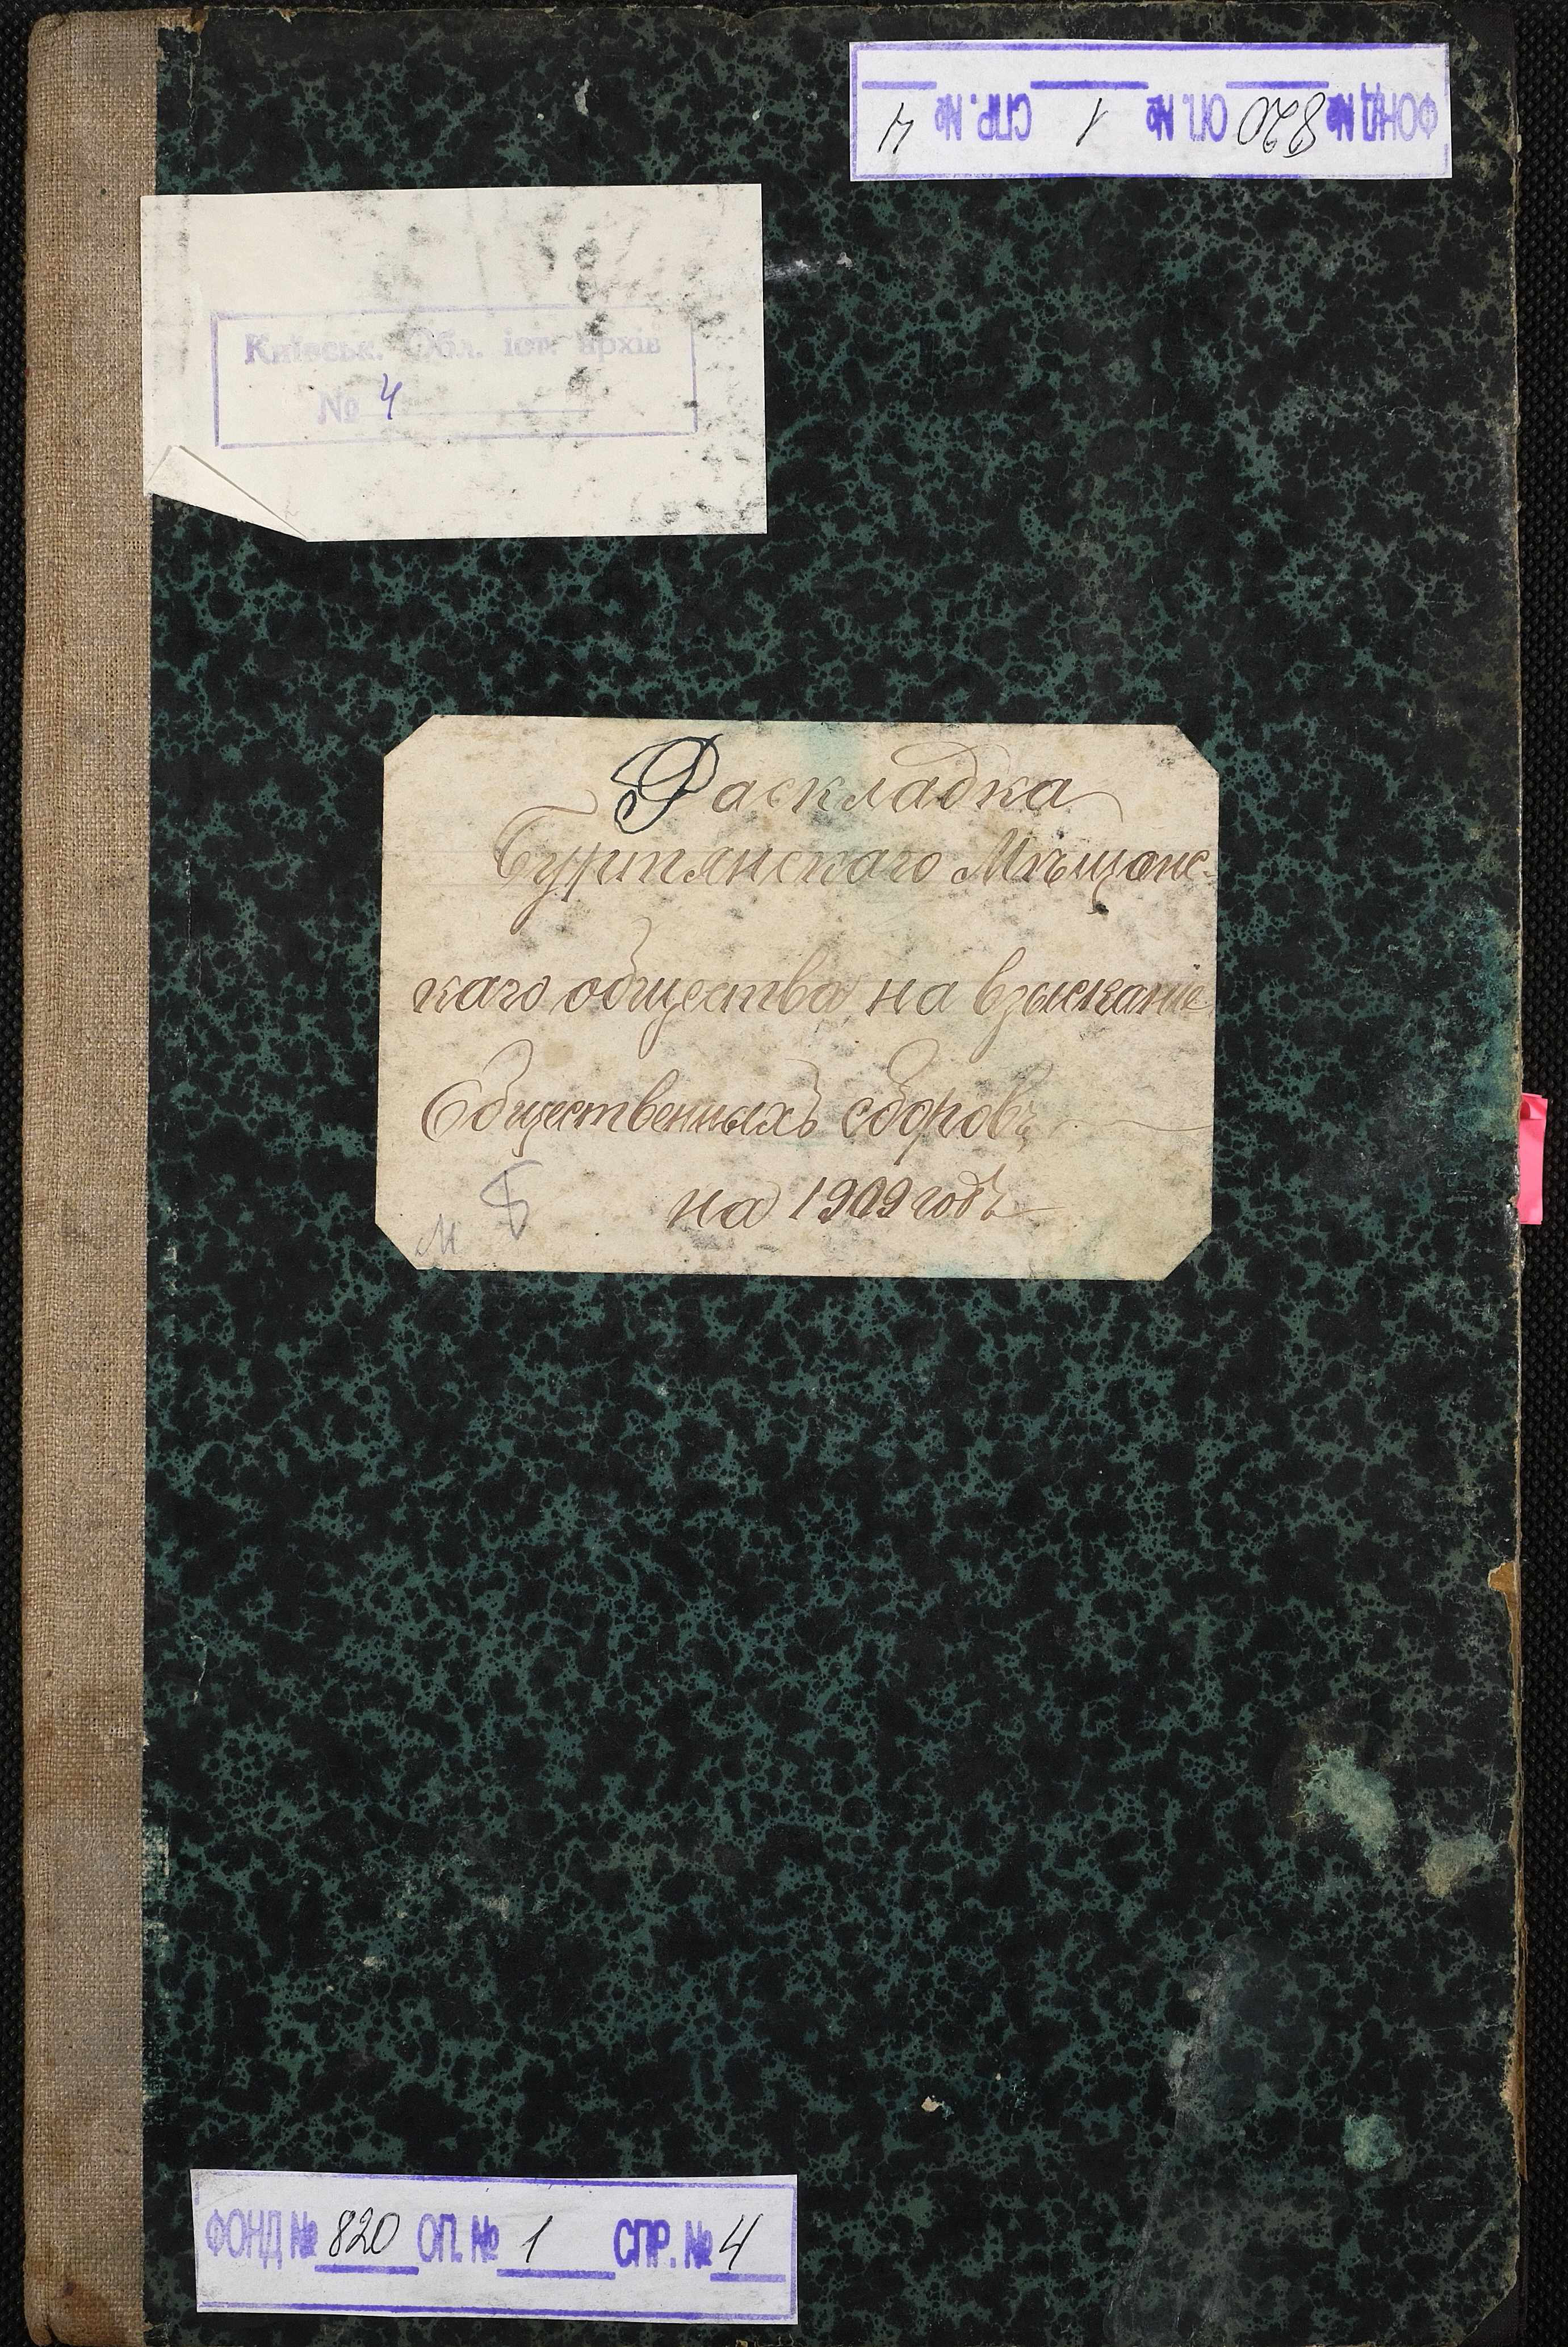 ФОНД № 820 ОП. № 1 СПР. № 4
Київськ. Обл. іст. архів
№ 4
Раскладка
Буртянскаго Мѣщанс-
каго общества на взысканіе
Общественныхъ сборовъ
на 1909 годъ
М Б
ФОНД № 820 ОП. № 1 СПР. № 4